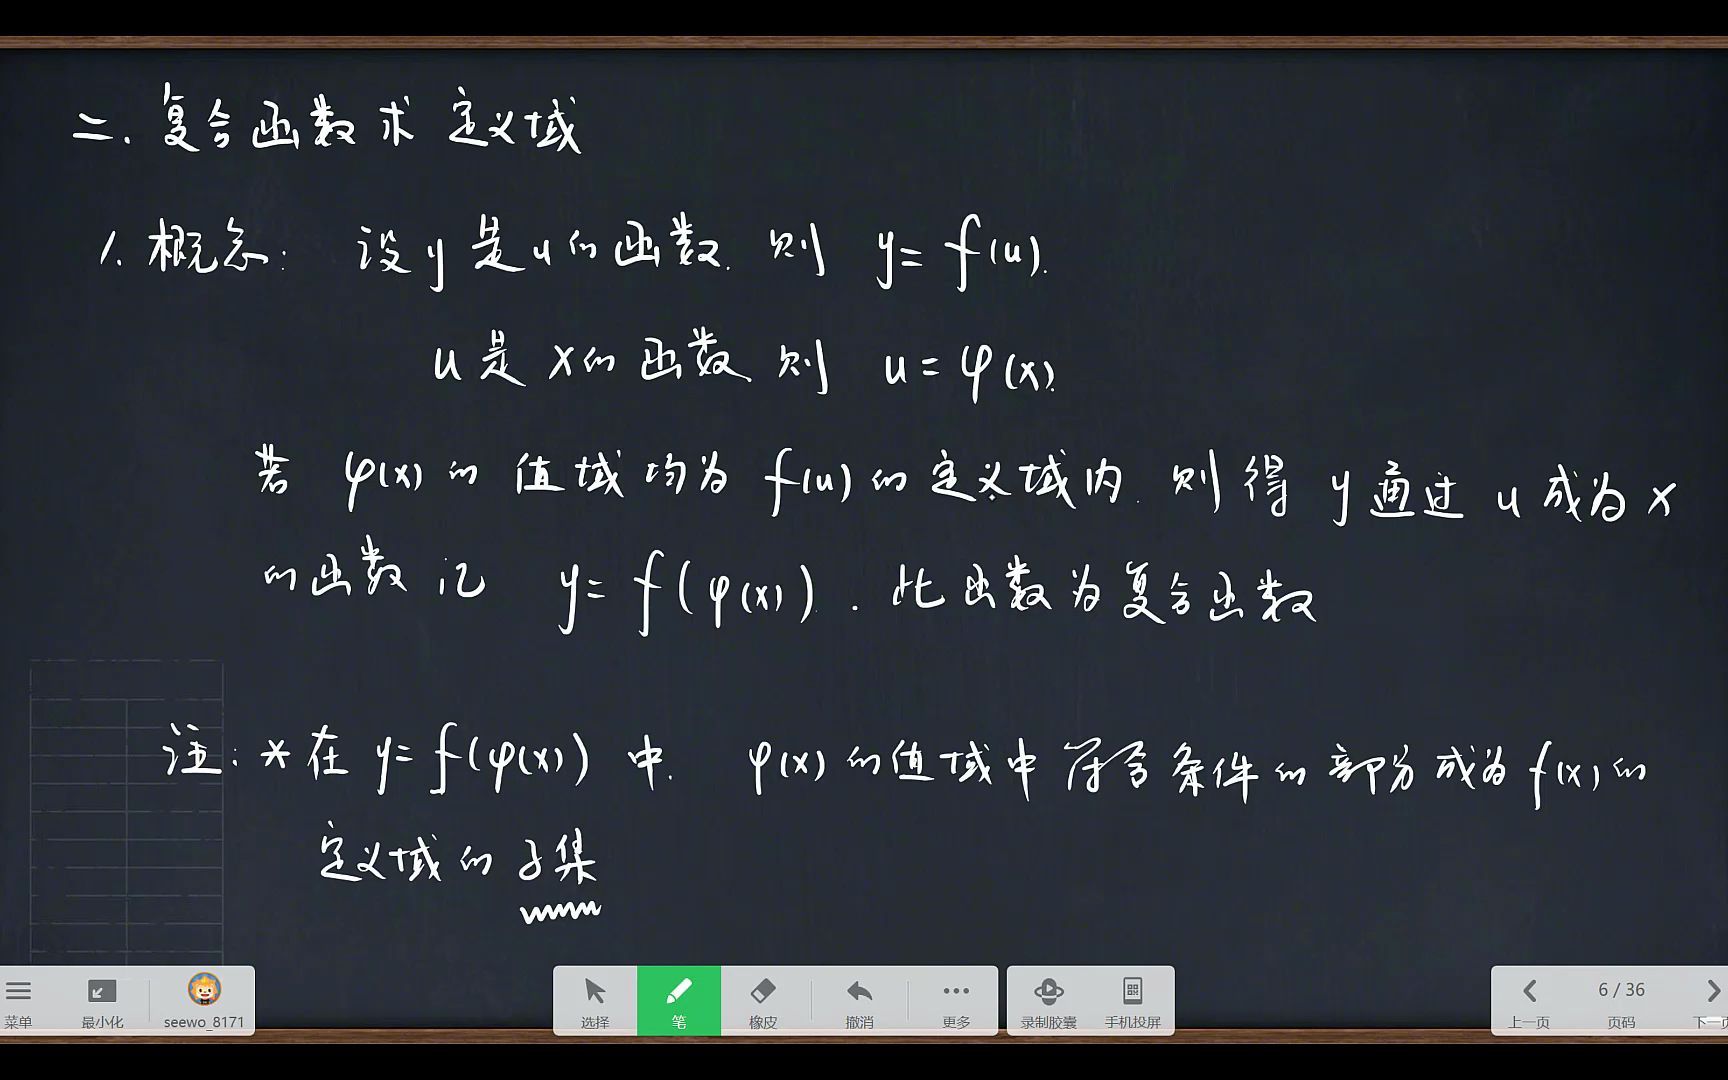 二. 复合函数求定义域
1. 概念: 设y是u的函数. 则 y=f(u).
u是x的函数 则 u=φ(x).
若 φ(x)的值域均为f(u)的定义域内. 则得y通过u成为x
的函数记 y=f(φ(x)). 此函数为复合函数
注: *在y=f(φ(x))中. φ(x)的值域中符合条件的部分成为f(x)的
定义域的子集
菜单 最小化 seewo_8171 选择 笔 橡皮 撤消 更多 录制胶囊 手机投屏 上一页 6 / 36 页码 下一页